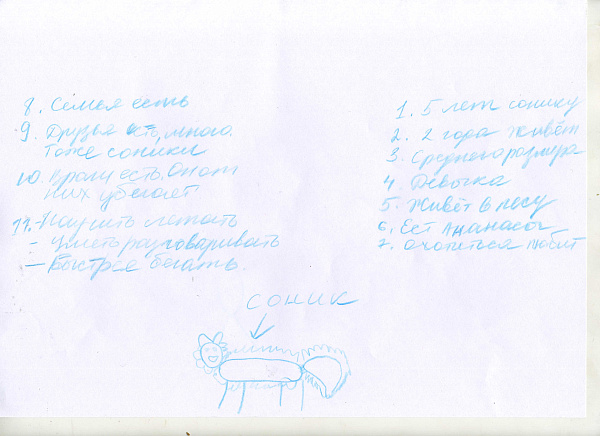 1. 5 лет сонику
2. 2 года живёт
3. Среднего размера
4. Девочка
5. Живёт в лесу
6. Ест Ананасы
7. охотиться любит
8. Семья есть
9. Друзья есть, много.
Тоже соники
10. Враги есть. Он от
них убегает
11. - Научить летать
- Уметь разговаривать
- Быстрее бегать.
СОНИК